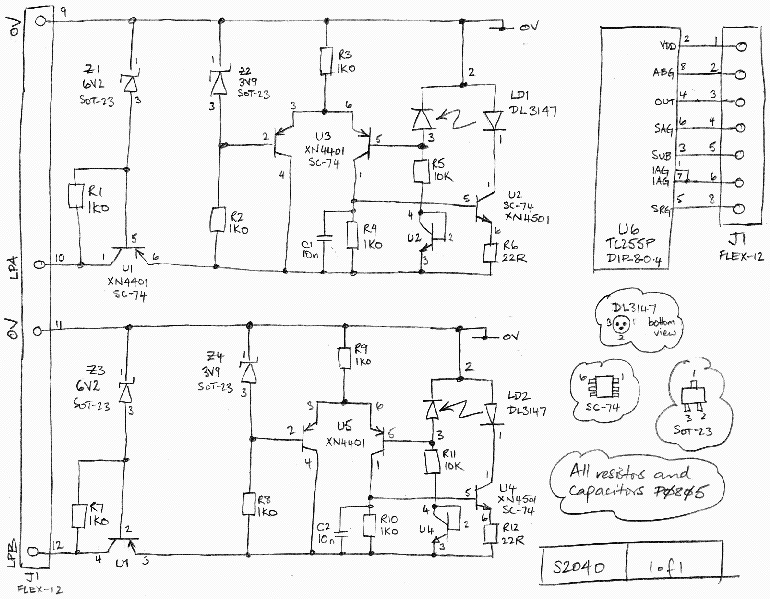 0V 9
Z1
6V2
SOT-23
1
3
Z2
3V9
SOT-23
1
3
R3
1K0
0V
2
LD1
DL3147
3
1
3 6
2
U3
XN4401
SC-74
5
4 1
R5
10K
R1
1K0
R2
1K0
C1
10n
R4
1K0
4
U2
2
3
5
1
U2
SC-74
XN4501
6
R6
22R
LPA 10
1
5
6
U1
XN4401
SC-74
0V 11
Z3
6V2
SOT-23
1
3
Z4
3V9
SOT-23
1
3
R9
1K0
0V
2
LD2
DL3147
3
1
3 6
2
U5
XN4401
5
4 1
R11
10K
R7
1K0
R8
1K0
C2
10n
R10
1K0
4
U4
2
3
5
1
U4
XN4501
SC-74
6
R12
22R
LPB 12
4
2
3
U1
J1
FLEX-12
VDD 2 1
ABG 8 2
OUT 4 3
SAG 6 4
SUB 3 5
IAG 1
IAG 7 6
SRG 5 8
U6
TL255P
DIP-80.4
J1
FLEX-12
DL3147
3 1
2
bottom
view
6 1
SC-74
1
3 2
SOT-23
All resistors and
capacitors P0805
S2040 1 of 1